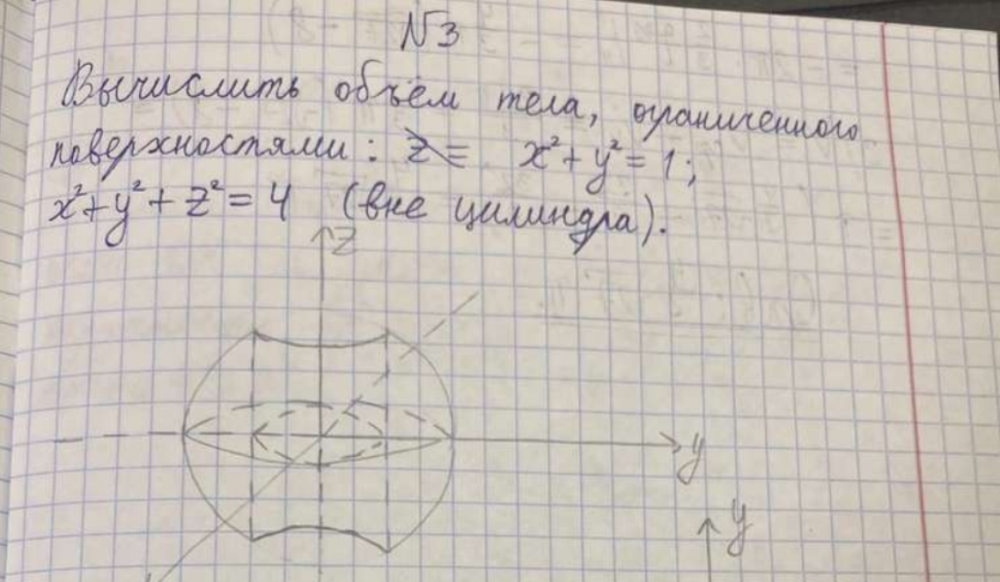 №3
Вычислить объём тела, ограниченного
поверхностями: z = x² + y² = 1;
x² + y² + z² = 4 (вне цилиндра).
z
y
y